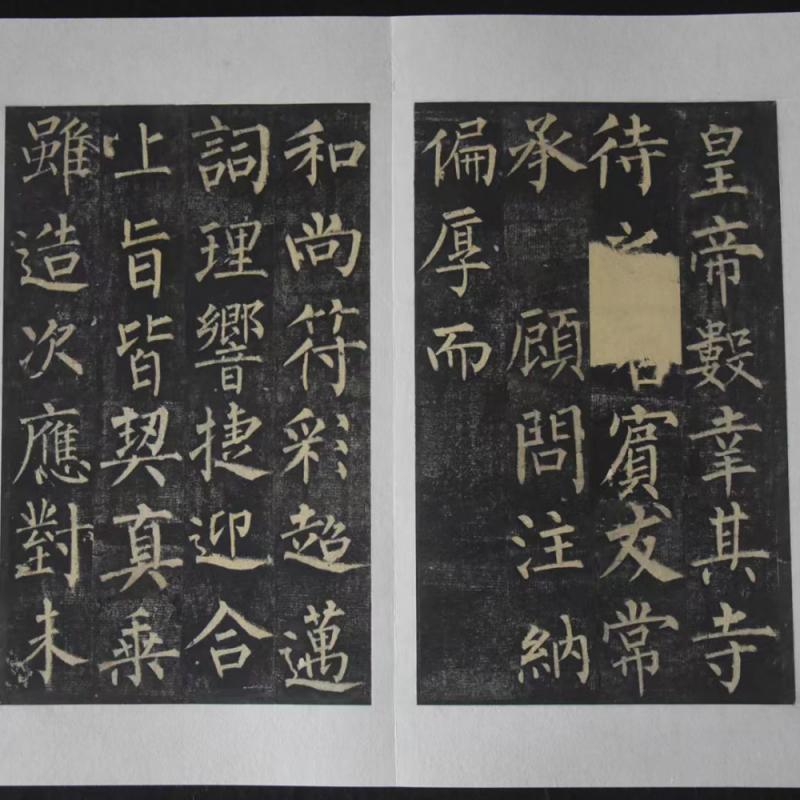 皇帝數幸其寺
待賓友常
承 顧問注納
偏厚而
和尚符彩超邁
詞理響捷迎合
上旨皆契真乘
雖造次應對未